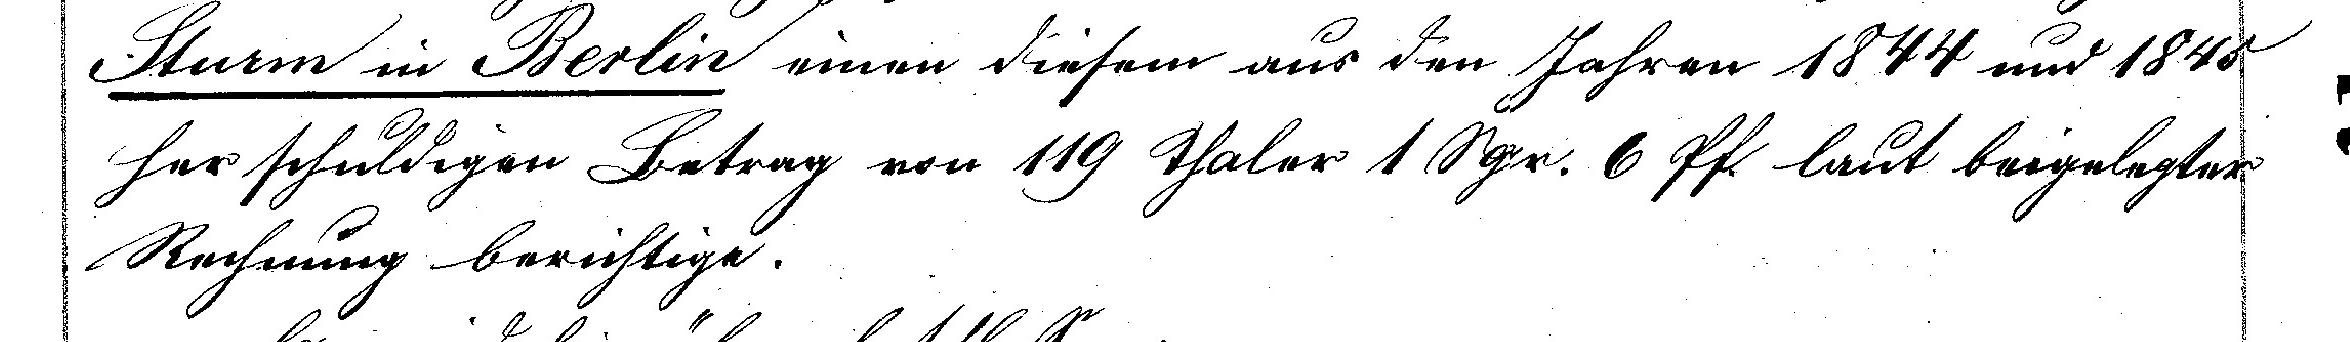 Sturm in Berlin einen diesem aus den Jahren 1844 und 1845
her schuldigen Betrag von 119 Thaler 1 Sgr. 6 Pf. laut beigelegter
Rechnung berichtige.